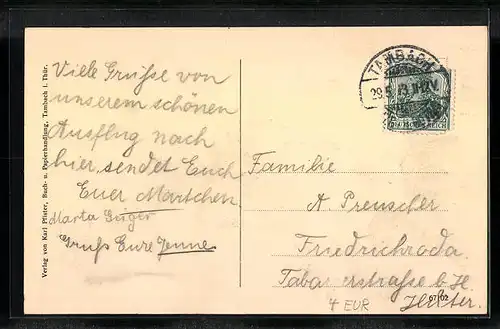 Viele Grüße von
unserem schönen
Ausflug nach
hier, sendet Euch
Euer Martchen
Marta Geiger
Gruß Eure Jenne
Verlag von Karl Pfister, Buch- u. Papierhandlung, Tambach i. Thür.
TAMBACH
Familie
A. Preuscher
Friedrichroda
Tabarzerstraße b. H.
67102
4 EUR